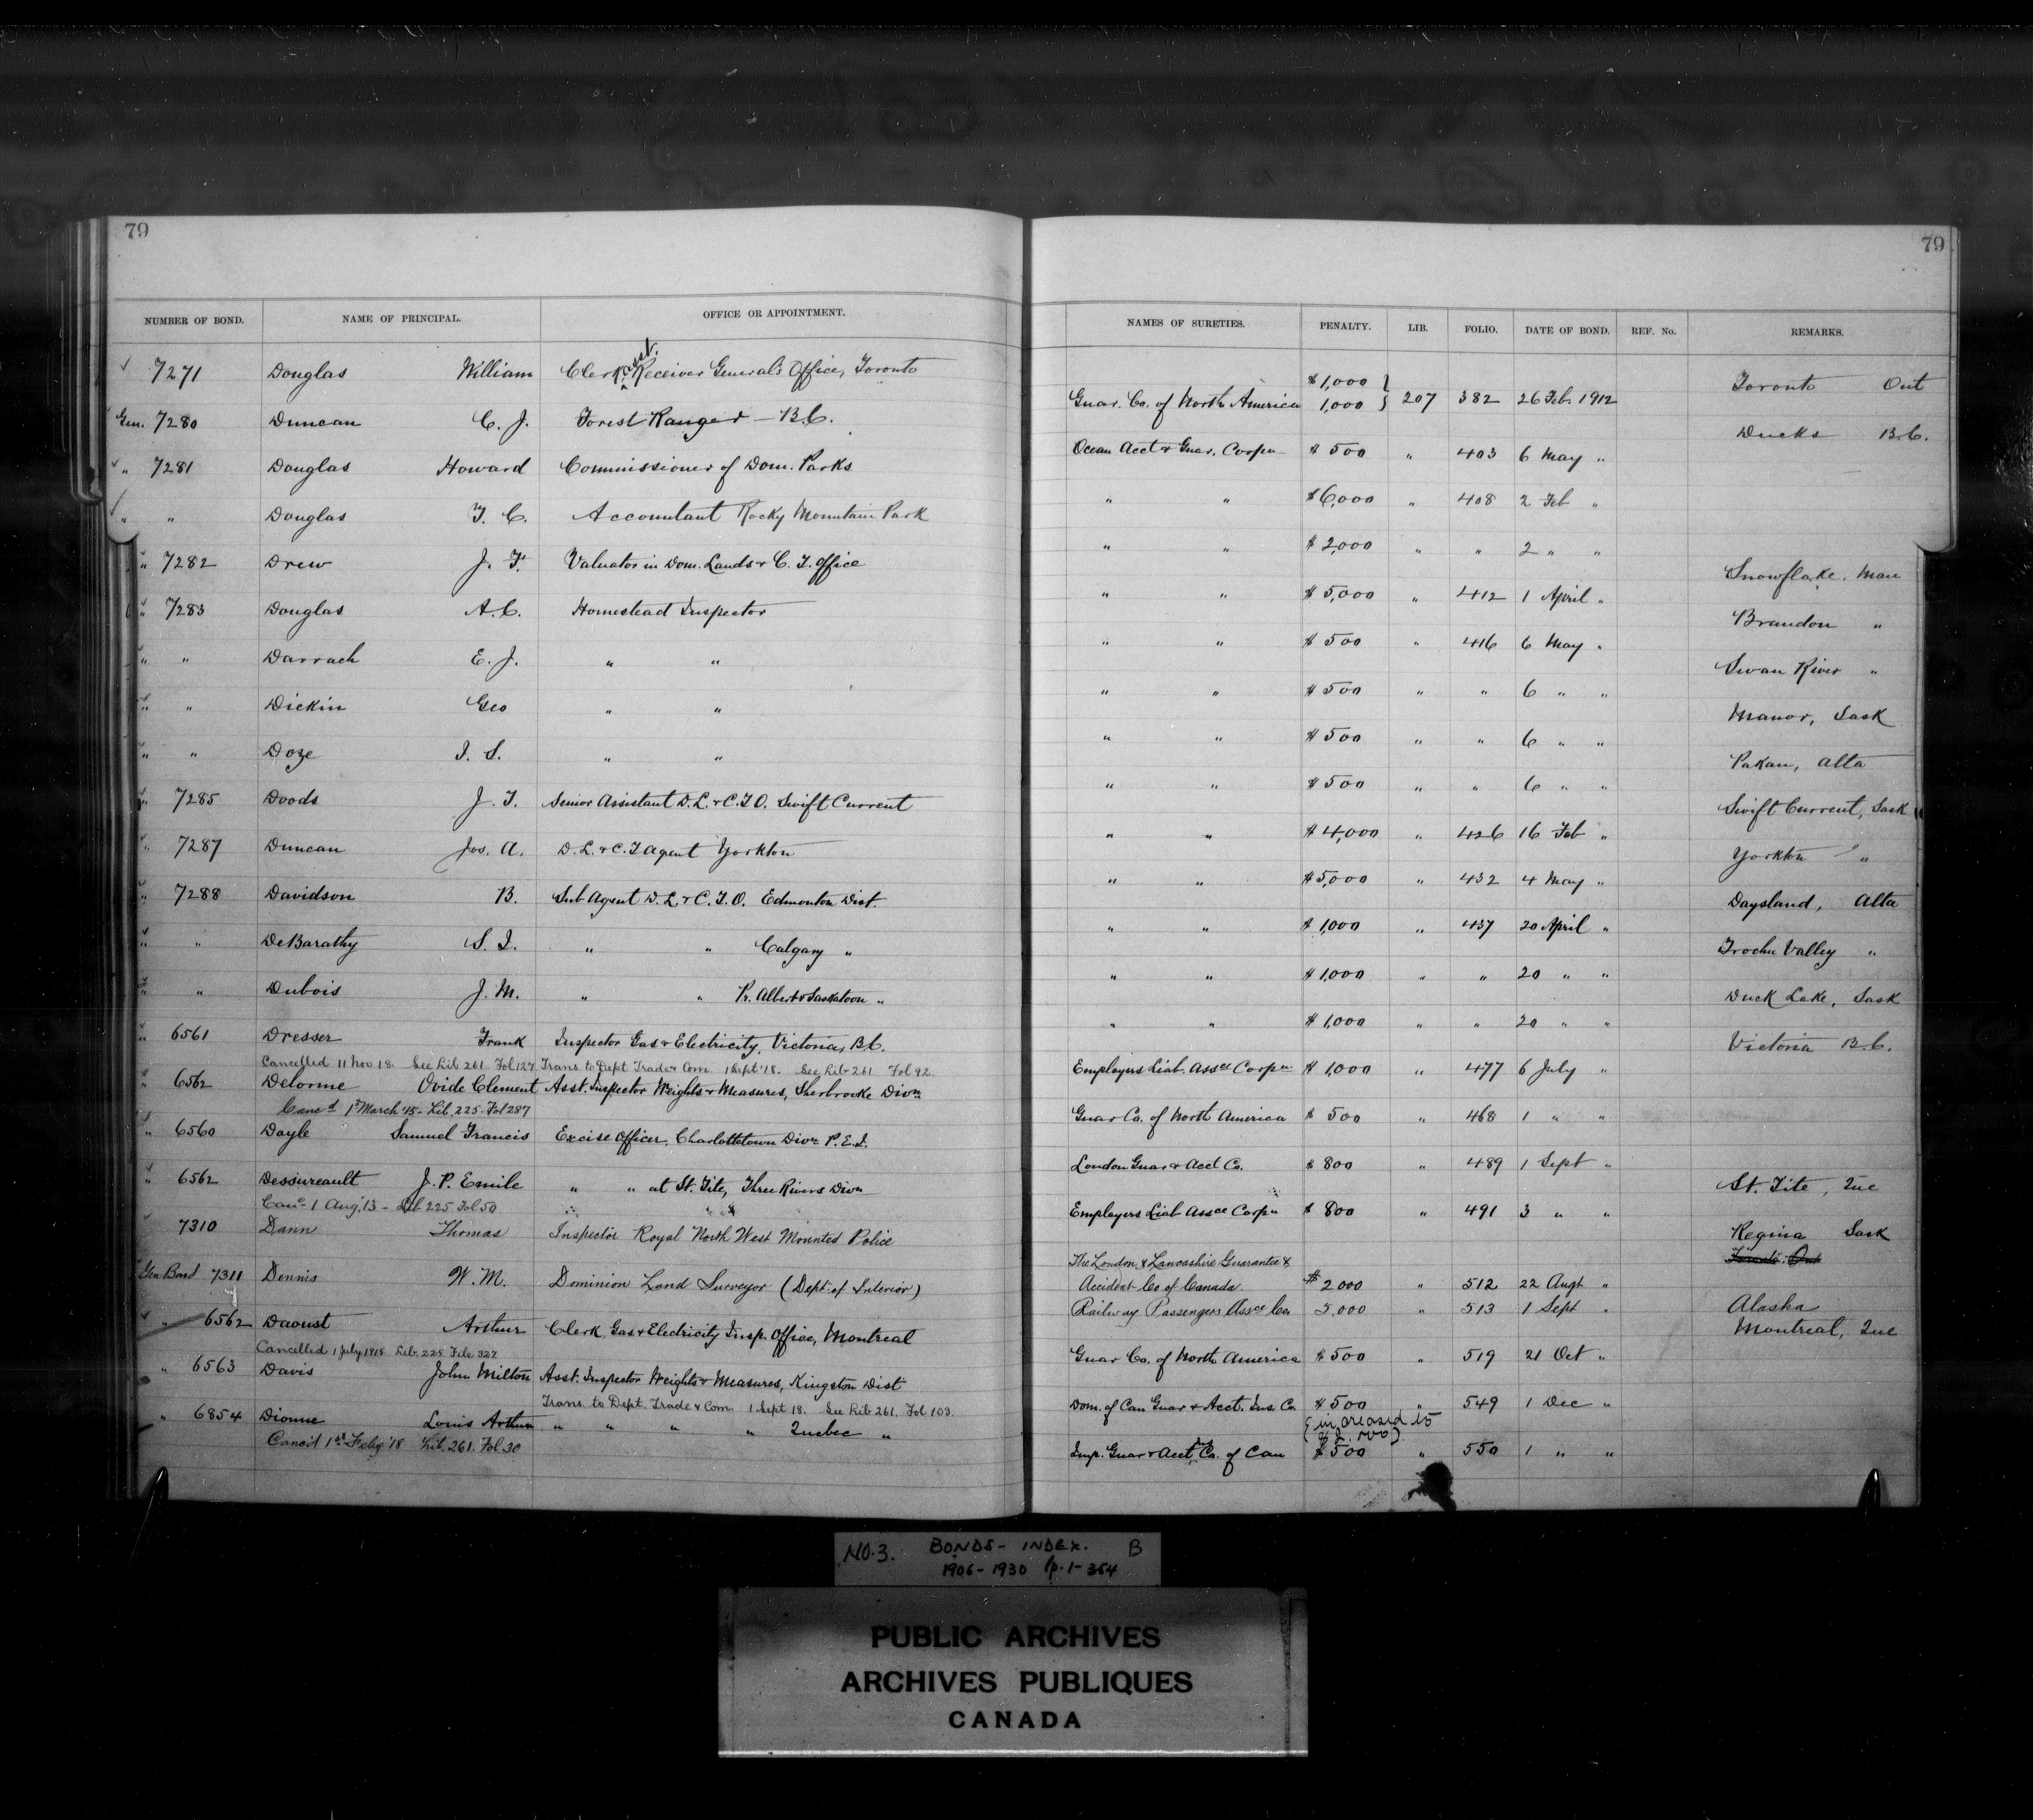 79
79
NUMBER OF BOND. NAME OF PRINCIPAL. OFFICE OR APPOINTMENT. NAMES OF SURETIES. PENALTY. LIB. FOLIO. DATE OF BOND. REF. No. REMARKS.
7271 Douglas William Clerk, Asst. Receiver General's Office, Toronto Guar. Co. of North America $1,000 } 1,000 } 207 382 26 Feb. 1912 Toronto Ont
Gen. 7280 Duncan C. J. Forest Ranger — B.C. Ocean Acct & Guar. Corpn $ 500 " 403 6 May " Ducks B.C.
" 7281 Douglas Howard Commissioner of Dom. Parks " " $6,000 " 408 2 Feb "
" " Douglas T. C. Accountant Rocky Mountain Park " " $ 2,000 " " 2 " "
" 7282 Drew J. F. Valuator in Dom. Lands & C. T. Office " " $ 5,000 " 412 1 April " Snowflake, Man
" 7283 Douglas A. C. Homestead Inspector " " $ 500 " 416 6 May " Brandon "
" " Darrach E. J. " " " " $ 500 " " 6 " " Swan River "
" " Dickin Geo " " " " $ 500 " " 6 " " Manor, Sask
" " Doze I. S. " " " " $ 500 " " 6 " " Pakan, Alta
" 7285 Doods J. T. Senior Assistant D. L. & C. T. O. Swift Current " " $ 4,000 " 426 16 Feb " Swift Current, Sask
" 7287 Duncan Jos. A. D. L. & C. T Agent Yorkton " " $5,000 " 432 4 May " Yorkton "
" 7288 Davidson B. Sub Agent D. L. & C. T. O. Edmonton Dist. " " $ 1,000 " 437 20 April " Daysland, Alta
" " DeBarathy S. I. " " Calgary " " " $ 1,000 " " 20 " " Trochu Valley "
" " Dubois J. M. " " Pr. Albert & Saskatoon " " " $ 1,000 " " 20 " " Duck Lake, Sask
" 6561 Dresser Frank Inspector Gas & Electricity, Victoria, B.C. Employers Liab. Assce Corpn $ 1,000 " 477 6 July " Victoria B.C.
Cancelled 11 Nov 18. See Lib 261 Fol 127 Trans. to Dept Trade & Com 1 Sept '18. See Lib 261 Fol 92.
" 6562 Delorme Ovide Clement Asst. Inspector Weights & Measures, Sherbrooke Divn Guar Co. of North America $ 500 " 468 1 " "
Canc'd 1st March '15 - Lib. 225. Fol 287
" 6560 Doyle Samuel Francis Excise Officer, Charlottetown Divn P.E.I. London Guar & Acct Co. $ 800 " 489 1 Sept "
" 6562 Dessureault J. P. Emile " " at St. Tite, Three Rivers Divn Employers Liab Assce Corpn $ 800 " 491 3 " " St. Tite, Que
Canc 1 Aug '13 - Lib 225 Fol 50
7310 Dann Thomas Inspector Royal North West Mounted Police The London & Lancashire Guarantee & Accident Co of Canada. $ 2 000 " 512 22 Augt " Regina Sask
Toronto Ont
Gen Bond 7311 Dennis W. M. Dominion Land Surveyor (Dept. of Interior) Railway Passengers Assce Co 5,000 " 513 1 Sept " Alaska
" 6562 Daoust Arthur Clerk, Gas & Electricity Insp. Office, Montreal Guar Co. of North America $ 500 " 519 21 Oct " Montreal, Que
Cancelled 1 July 1915 Lib. 225 File 327
" 6563 Davis John Milton Asst. Inspector Weights & Measures, Kingston Dist Dom. of Can Guar & Acct. Ins. Co. $ 500 " 549 1 Dec "
Trans. to Dept. Trade & Com. 1 Sept 18. See Lib 261. Fol 103 (increased to $1,000)
" 6854 Dionne Louis Arthur " " " " Quebec " Imp. Guar & Acct Co. of Can $ 500 " 550 1 " "
Canc'd 1st Feby '18 Lib. 261. Fol. 30
NO. 3. BONDS - INDEX. B
1906 - 1930 p. 1 - 354
PUBLIC ARCHIVES
ARCHIVES PUBLIQUES
CANADA